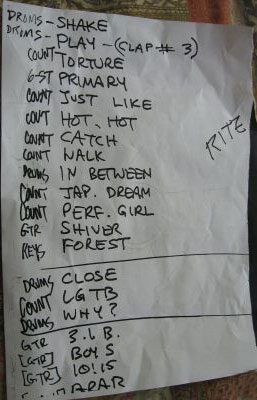 DRUMS - SHAKE
DRUMS - PLAY - (CLAP # 3)
COUNT TORTURE
6-ST PRIMARY
COUNT JUST LIKE
COUT HOT, HOT
COUNT CATCH
COUNT WALK
DRUMS IN BETWEEN
COUNT JAP. DREAM
COUNT PERF. GIRL
GTR SHIVER
KEYS FOREST
RITZ
DRUMS CLOSE
COUNT LGTB
DRUMS WHY?
GTR 3.I.B.
[GTR] BOYS
[GTR] 10!15